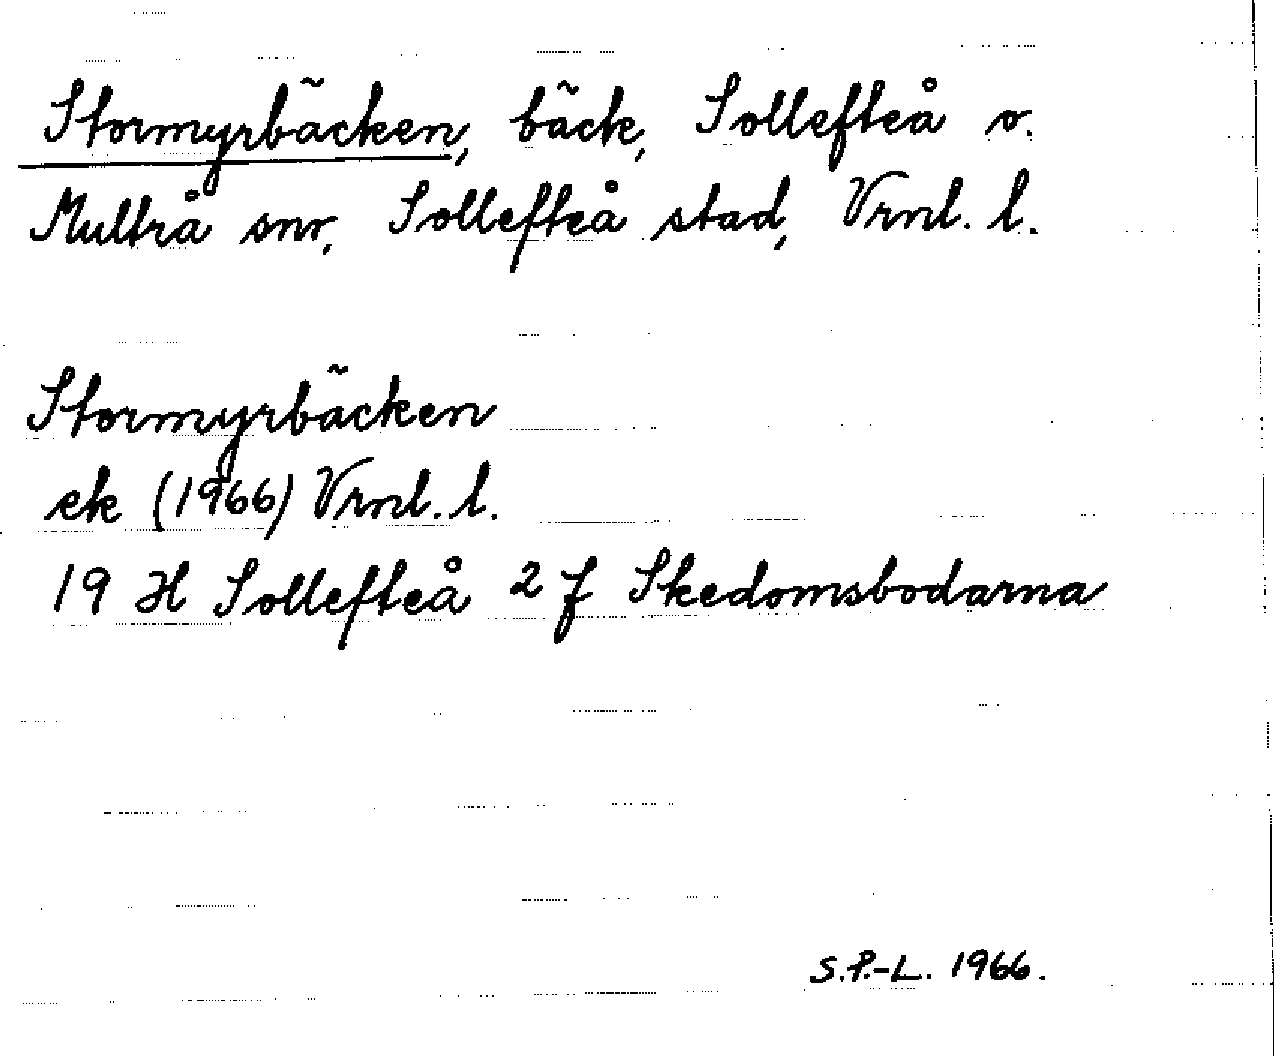 Stormyrbäcken, bäck, Sollefteå o.
Multrå snr, Sollefteå stad, Vrnl. l.
Stormyrbäcken
ek (1966) Vrnl. l.
19 H Sollefteå 2 f Skedomsbodarna
S.P.-L. 1966.